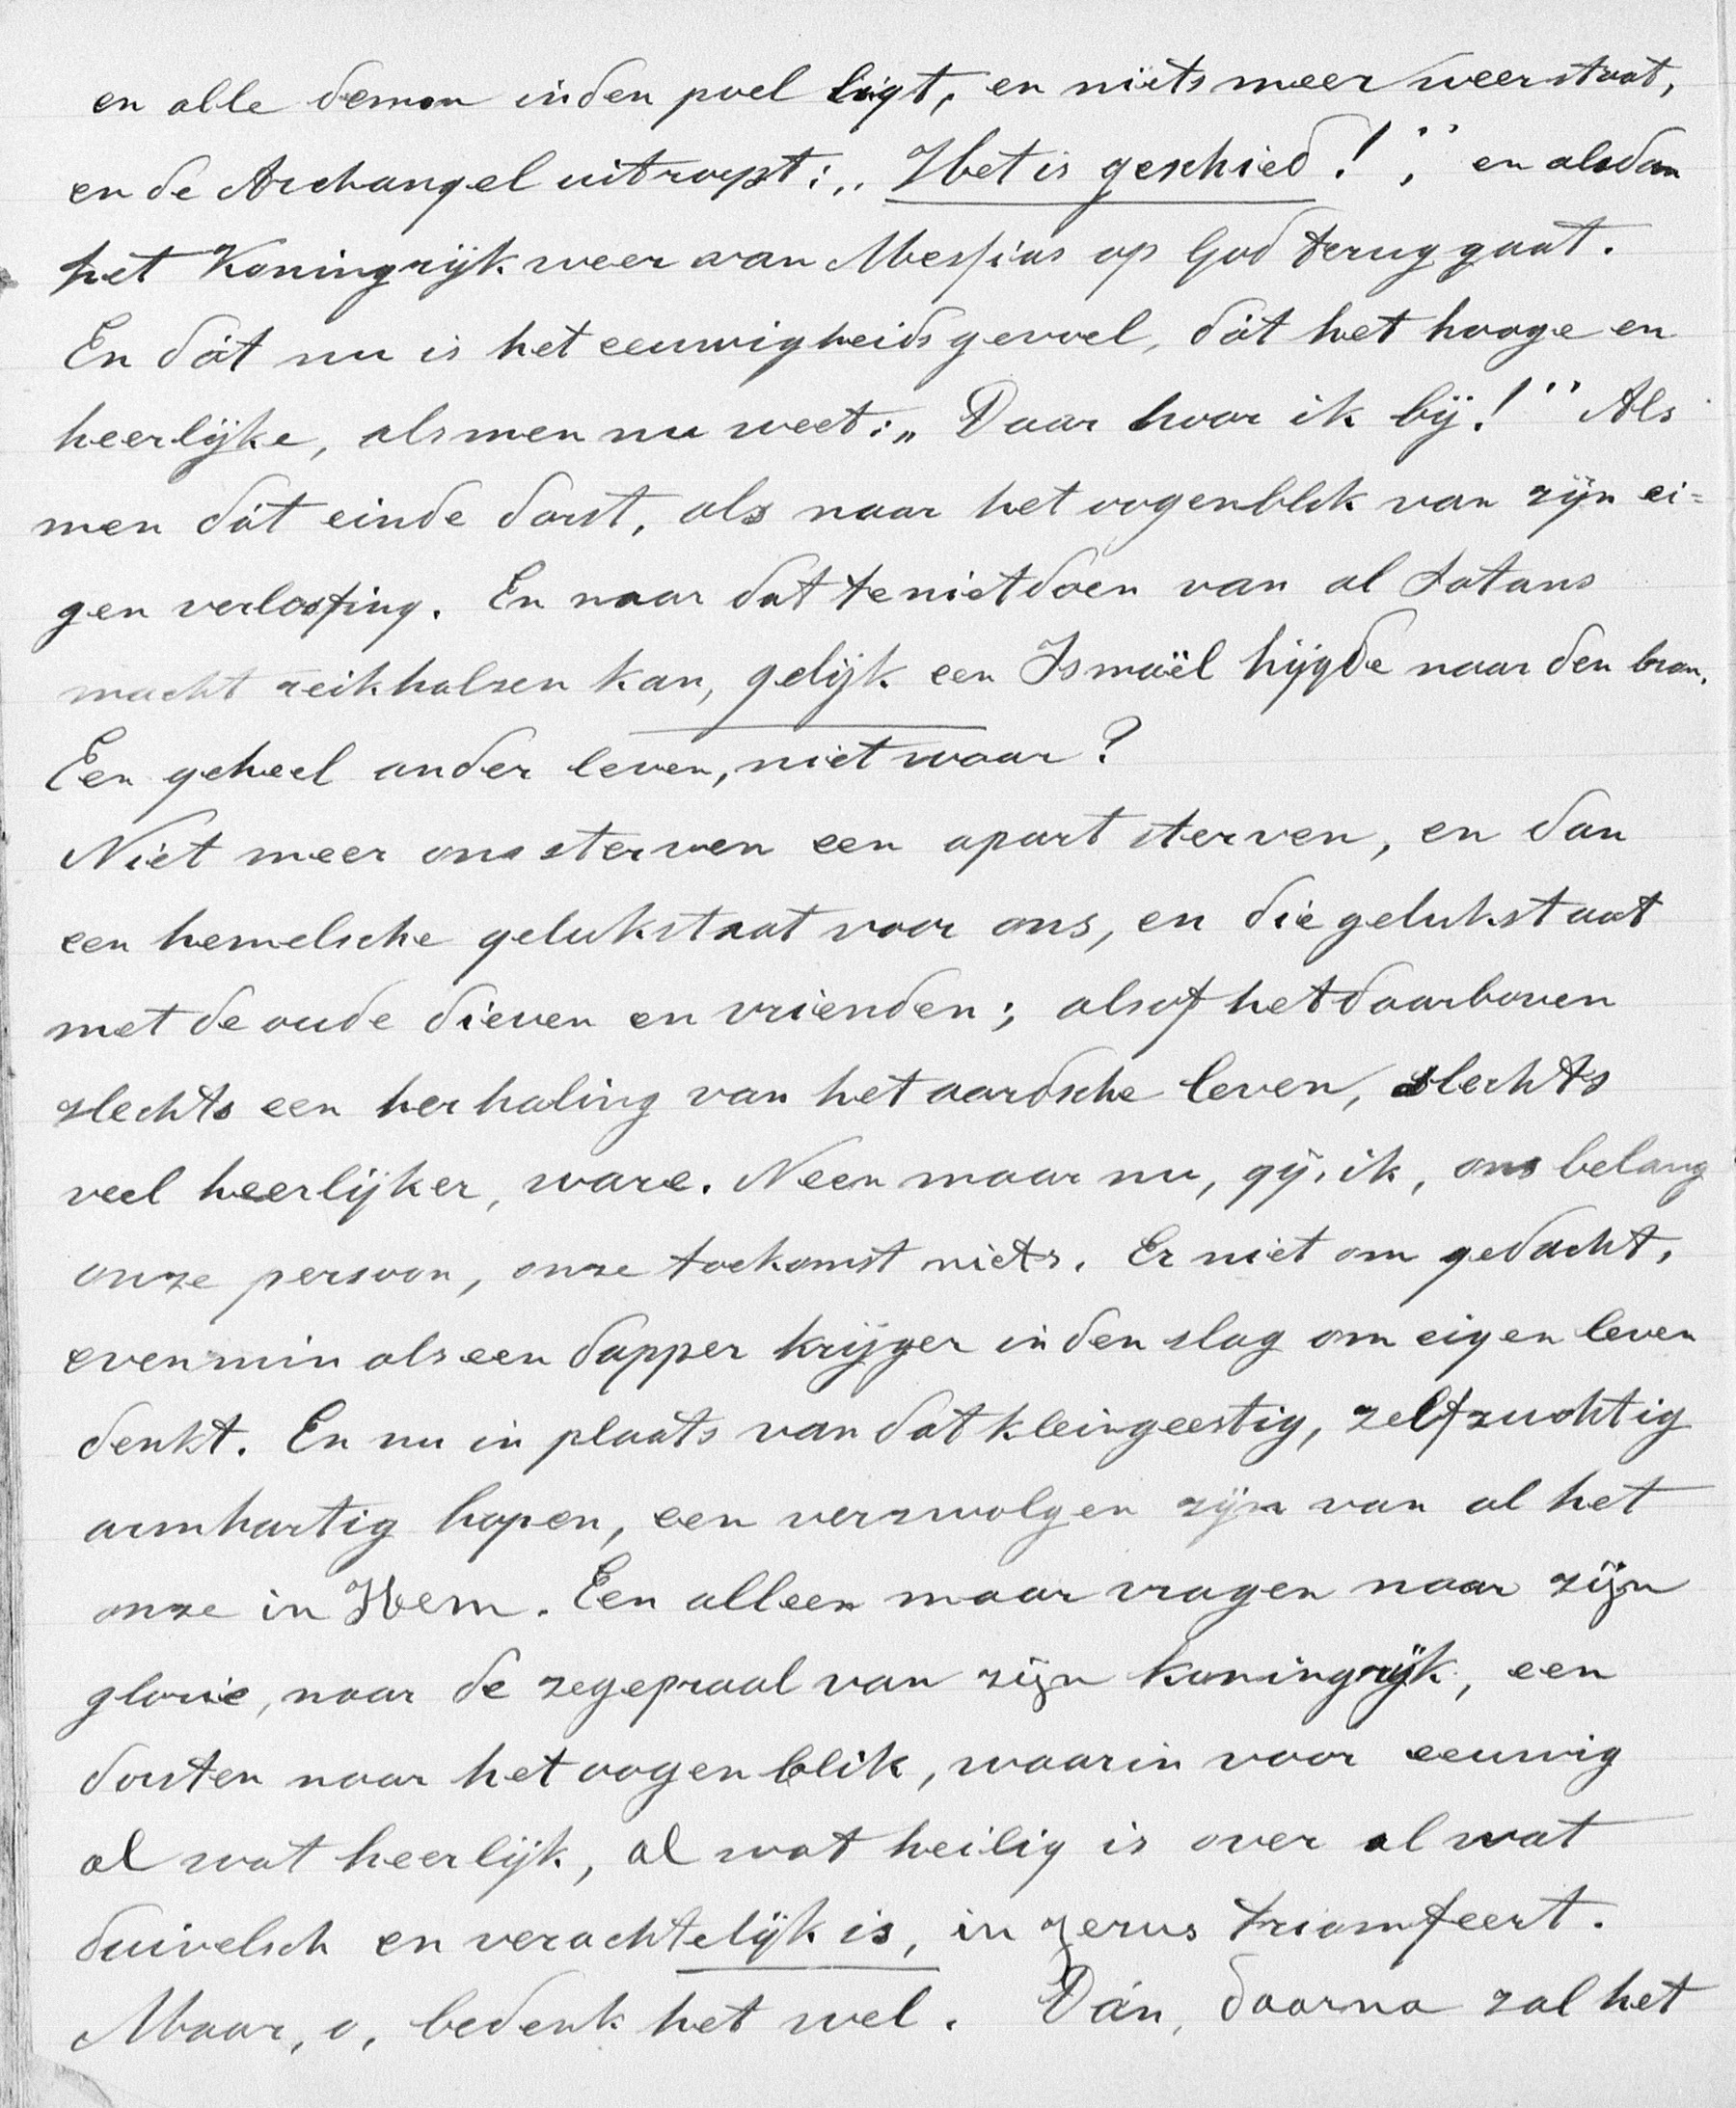 en alle demon in den poel ligt, en niets meer weerstaat,
en de Archangel uitroept: „Het is geschied!", en alsdan
het Koningrijk weer van Messias op God teruggaat.
En dát nu is het eeuwigheidsgevoel, dát het hooge en
heerlijke, als men nu weet: „Daar hoor ik bij!" Als
men dát einde dorst, als naar het oogenblik van zijn ei=
gen verlossing. En naar dat tenietdoen van al Satans
macht reikhalzen kan, gelijk een Ismaël hijgde naar den bron.
Een geheel ander leven, niet waar?
Niet meer ons sterven een apart sterven, en dan
een hemelsche gelukstaat voor ons, en die gelukstaat
met de oude lieven en vrienden; alsof het daarboven
slechts een herhaling van het aardsche leven, slechts
veel heerlijker, ware. Neen maar nu, gij, ik, ons belang
onze persoon, onze toekomst niets. Er niet om gedacht,
evenmin als een dapper krijger in den slag om eigen leven
denkt. En nu in plaats van dat kleingeestig, zelfzuchtig
armhartig hopen, een verzwolgen zijn van al het
onze in Hem. Een alleen maar vragen naar zijn
glorie, naar de zegepraal van zijn koningrijk, een
dorsten naar het oogenblik, waarin voor eeuwig
al wat heerlijk, al wat heilig is over al wat
duivelsch en verachtelijk is, in Jezus triomfeert.
Maar, o, bedenk het wel. Dán, daarna zal het